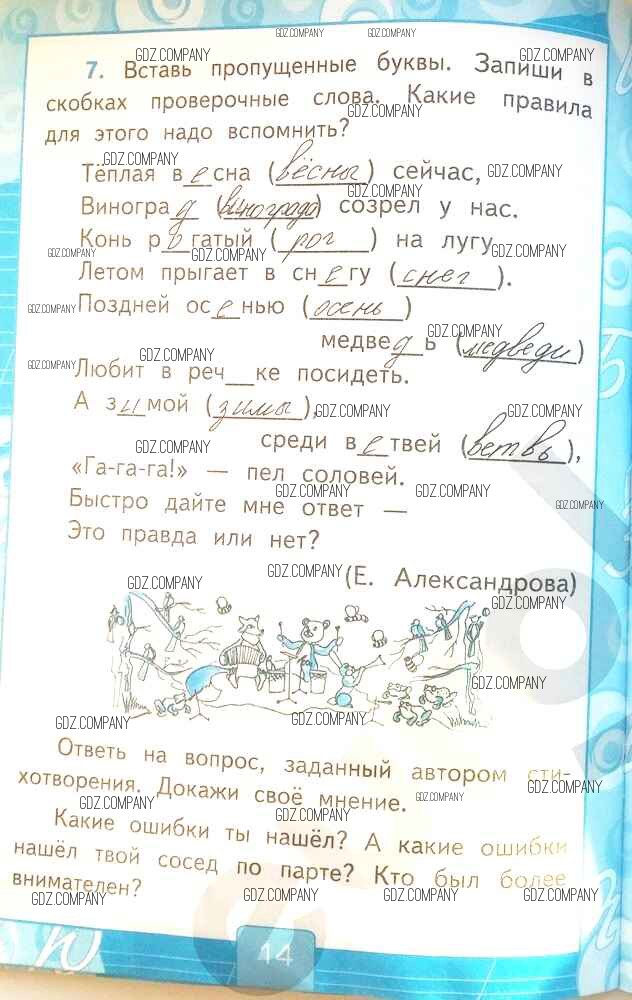 GDZ.COMPANY GDZ.COMPANY
GDZ.COMPANY GDZ.COMPANY
7. Вставь пропущенные буквы. Запиши в
скобках проверочные слова. Какие правила
GDZ.COMPANY
для этого надо вспомнить?
GDZ.COMPANY
Тёплая в е сна (вёсны) сейчас,
GDZ.COMPANY
GDZ.COMPANY
Виногра д (винограда) созрел у нас.
Конь р о гатый (рог) на лугу
GDZ.COMPANY GDZ.COMPANY
Летом прыгает в сн е гу (снег).
GDZ.COMPANY Поздней ос е нью (осень)
GDZ.COMPANY
медве д ь (медведи)
GDZ.COMPANY GDZ.COMPANY
Любит в реч__ке посидеть.
А з и мой (зимы),
GDZ.COMPANY GDZ.COMPANY
GDZ.COMPANY
среди в е твей (ветвь),
«Га-га-га!» — пел соловей.
GDZ.COMPANY GDZ.COMPANY
Быстро дайте мне ответ —
GDZ.COMPANY
Это правда или нет?
GDZ.COMPANY GDZ.COMPANY
(Е. Александрова)
GDZ.COMPANY
GDZ.COMPANY
GDZ.COMPANY GDZ.COMPANY
Ответь на вопрос, заданный автором сти-
хотворения. Докажи своё мнение.
GDZ.COMPANY
GDZ.COMPANY GDZ.COMPANY
GDZ.COMPANY
Какие ошибки ты нашёл? А какие ошибки
нашёл твой сосед по парте? Кто был более
внимателен?
GDZ.COMPANY GDZ.COMPANY GDZ.COMPANY GDZ.COMPANY
44